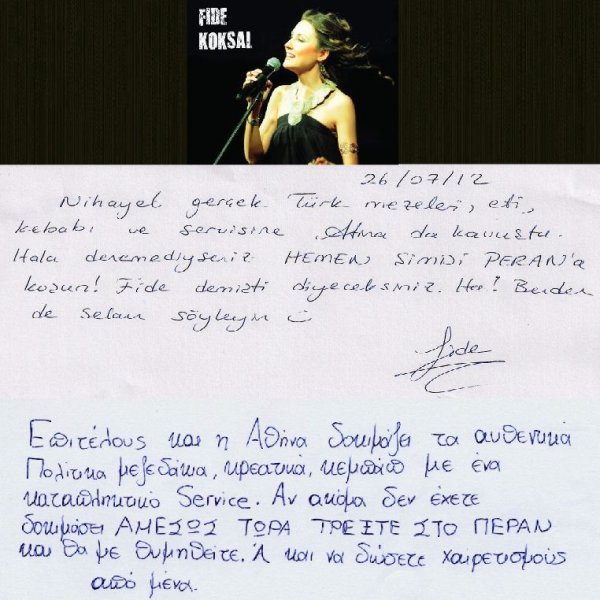 FIDE
KOKSAL
26/07/12
Nihayet gerçek Türk mezeleri, eti,
kebabı ve servisine Atina da kavuştu.
Hala denemediyseniz HEMEN ŞİMDİ PERAN'a
koşun! Fide demişti diyeceksiniz. Ha! Benden
de selam söyleyin
fide
Επιτέλους και η Αθήνα δοκιμάζει τα αυθεντικά
Πολίτικα μεζεδάκια, κρεατικά, κεμπάπ με ένα
καταπληκτικό Service. Αν ακόμα δεν έχετε
δοκιμάσει ΑΜΕΣΩΣ ΤΩΡΑ ΤΡΕΞΤΕ ΣΤΟ ΠΕΡΑΝ
και θα με θυμηθείτε. Ά και να δώσετε χαιρετισμούς
από μένα.